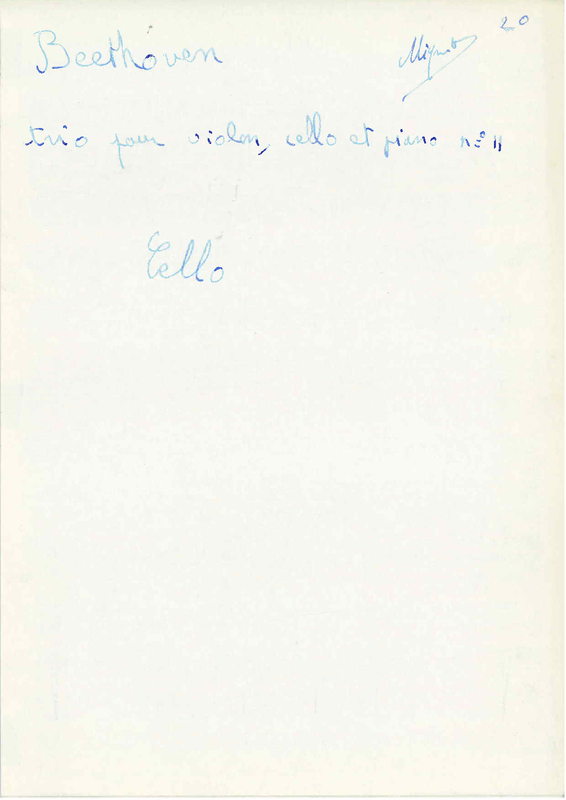 20
Beethoven
trio pour violon, cello et piano n° 11
Cello